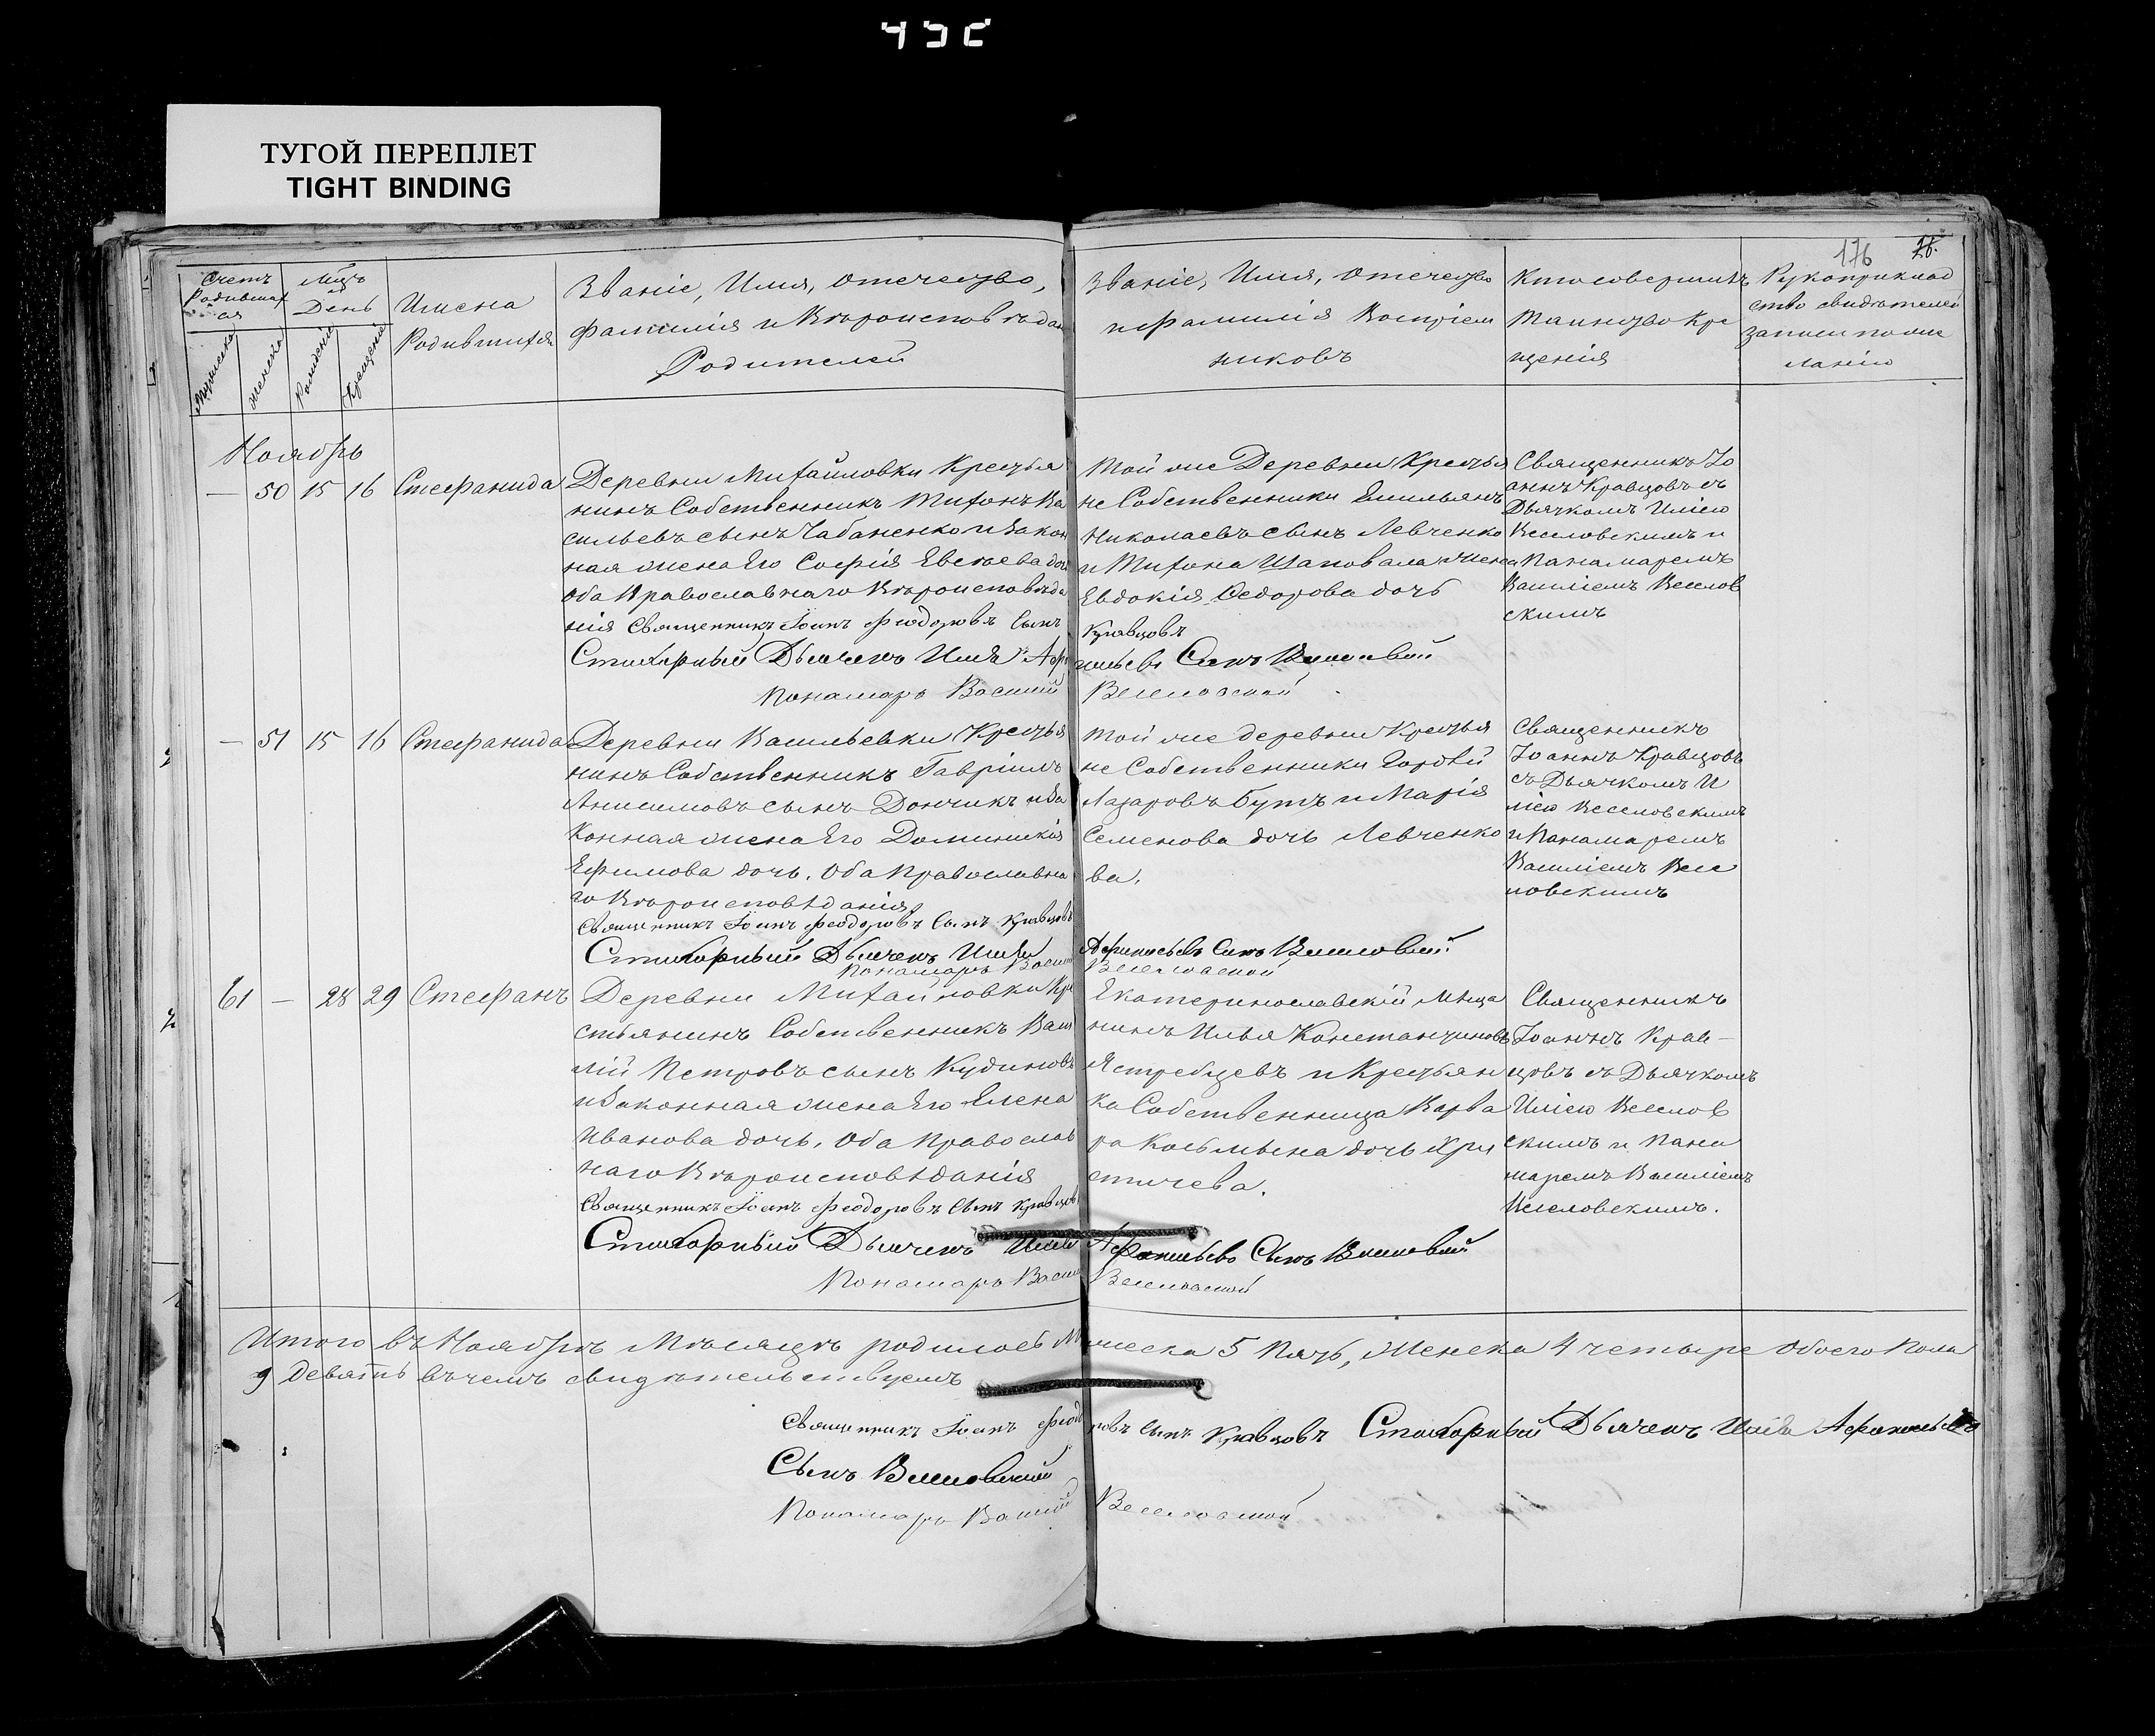 ТУГОЙ ПЕРЕПЛЕТ
TIGHT BINDING
176
Счетъ Родившихся
Мужеска
женска
Мцъ День
Рожденія
Крещенія
Имена
Родившихся
Званіе, Имя, отечество,
фамилія и Вѣроисповѣдан
Родителей
Званіе, Имя, отечество
и фамилія Воспріем
никовъ
Кто совершилъ
Таинство Кре
щенія
Рукоприклад
ство свидѣтелей
записи по же
ланію
Ноябрь
— 50 15 16 Стефанида
Деревни Михайловки Крестья
нинъ Собственникъ Тихонъ Ва
сильевъ сынъ Чабаненко и Закон
ная жена Его Софія Евсеева доч
Оба Православнаго Вѣроисповѣда
нія Священникъ Іоанъ Феодоровъ Сынъ
Кравцовъ
Стихарный Дьячекъ Илія
Сынъ
Пономарь Василий
Веселовской
Той же Деревни Крестья
не Собственники Емильянъ
Николаевъ сынъ Левченко
и Тихона Шаповала жена
Евдокія Федорова дочь
Священникъ Іо
аннъ Кравцовъ съ
Дьячкомъ Иліею
Веселовскимъ и
Панамаремъ
Василіемъ Веселов
скимъ
— 51 15 16 Стефанида
Деревни Васильевки Крестья
нинъ Собственникъ Гавріилъ
Анисимовъ сынъ Дончикъ и За
конная жена Его Домникія
Ефимова дочь. Оба Православна
го Вѣроисповѣданія
Священникъ Іоанъ Феодоровъ Сынъ Кравцовъ
Стихарный Дьячекъ Илія
Афанасьевъ Сынъ
Пономарь Васил
Веселовской
Той же деревни Крестья
не Собственники
Лазаровъ Бутъ и Марія
Семенова дочь Левченко
ва.
Священникъ
Іоаннъ Кравцовъ
съ Дьячкомъ И
ліею Веселовскимъ
и Панамаремъ
Василіемъ Весе
ловскимъ
61 — 28 29 Стефанъ
Деревни Михайловки Кре
стьянинъ Собственникъ Васи
лій Петровъ сынъ Кудиновъ
и Законная жена Его Елена
Иванова дочь. Оба Православ
наго Вѣроисповѣданія
Священникъ Іоанъ Феодоровъ Сынъ Кравцов
Стихарный Дьячекъ Илія
Афанасьевъ Сынъ
Пономарь Васил
Веселовской
Екатеринославскій Мѣща
нинъ Илья Константиновъ
Ястребцевъ и Крестьян
ка Собственница Варва
ра Козьмына дочь Хри
стичева.
Священникъ
Іоаннъ Крав-
цовъ съ Дьячкомъ
Иліею Веселов
скимъ и Пана
маремъ Василіемъ
Веселовскимъ.
Итого въ Ноябрѣ Мѣсяцѣ родилось Мужеска 5 Пять, Женска 4 четыре обоего Пола
9 Девять въ чемъ свидѣтельствуемъ
Священникъ Іоанъ Феодоровъ Сынъ Кравцовъ Стихарный Дьячекъ Илія Афанасьевъ
Сынъ Веселовский
Пономарь Василий Веселовской